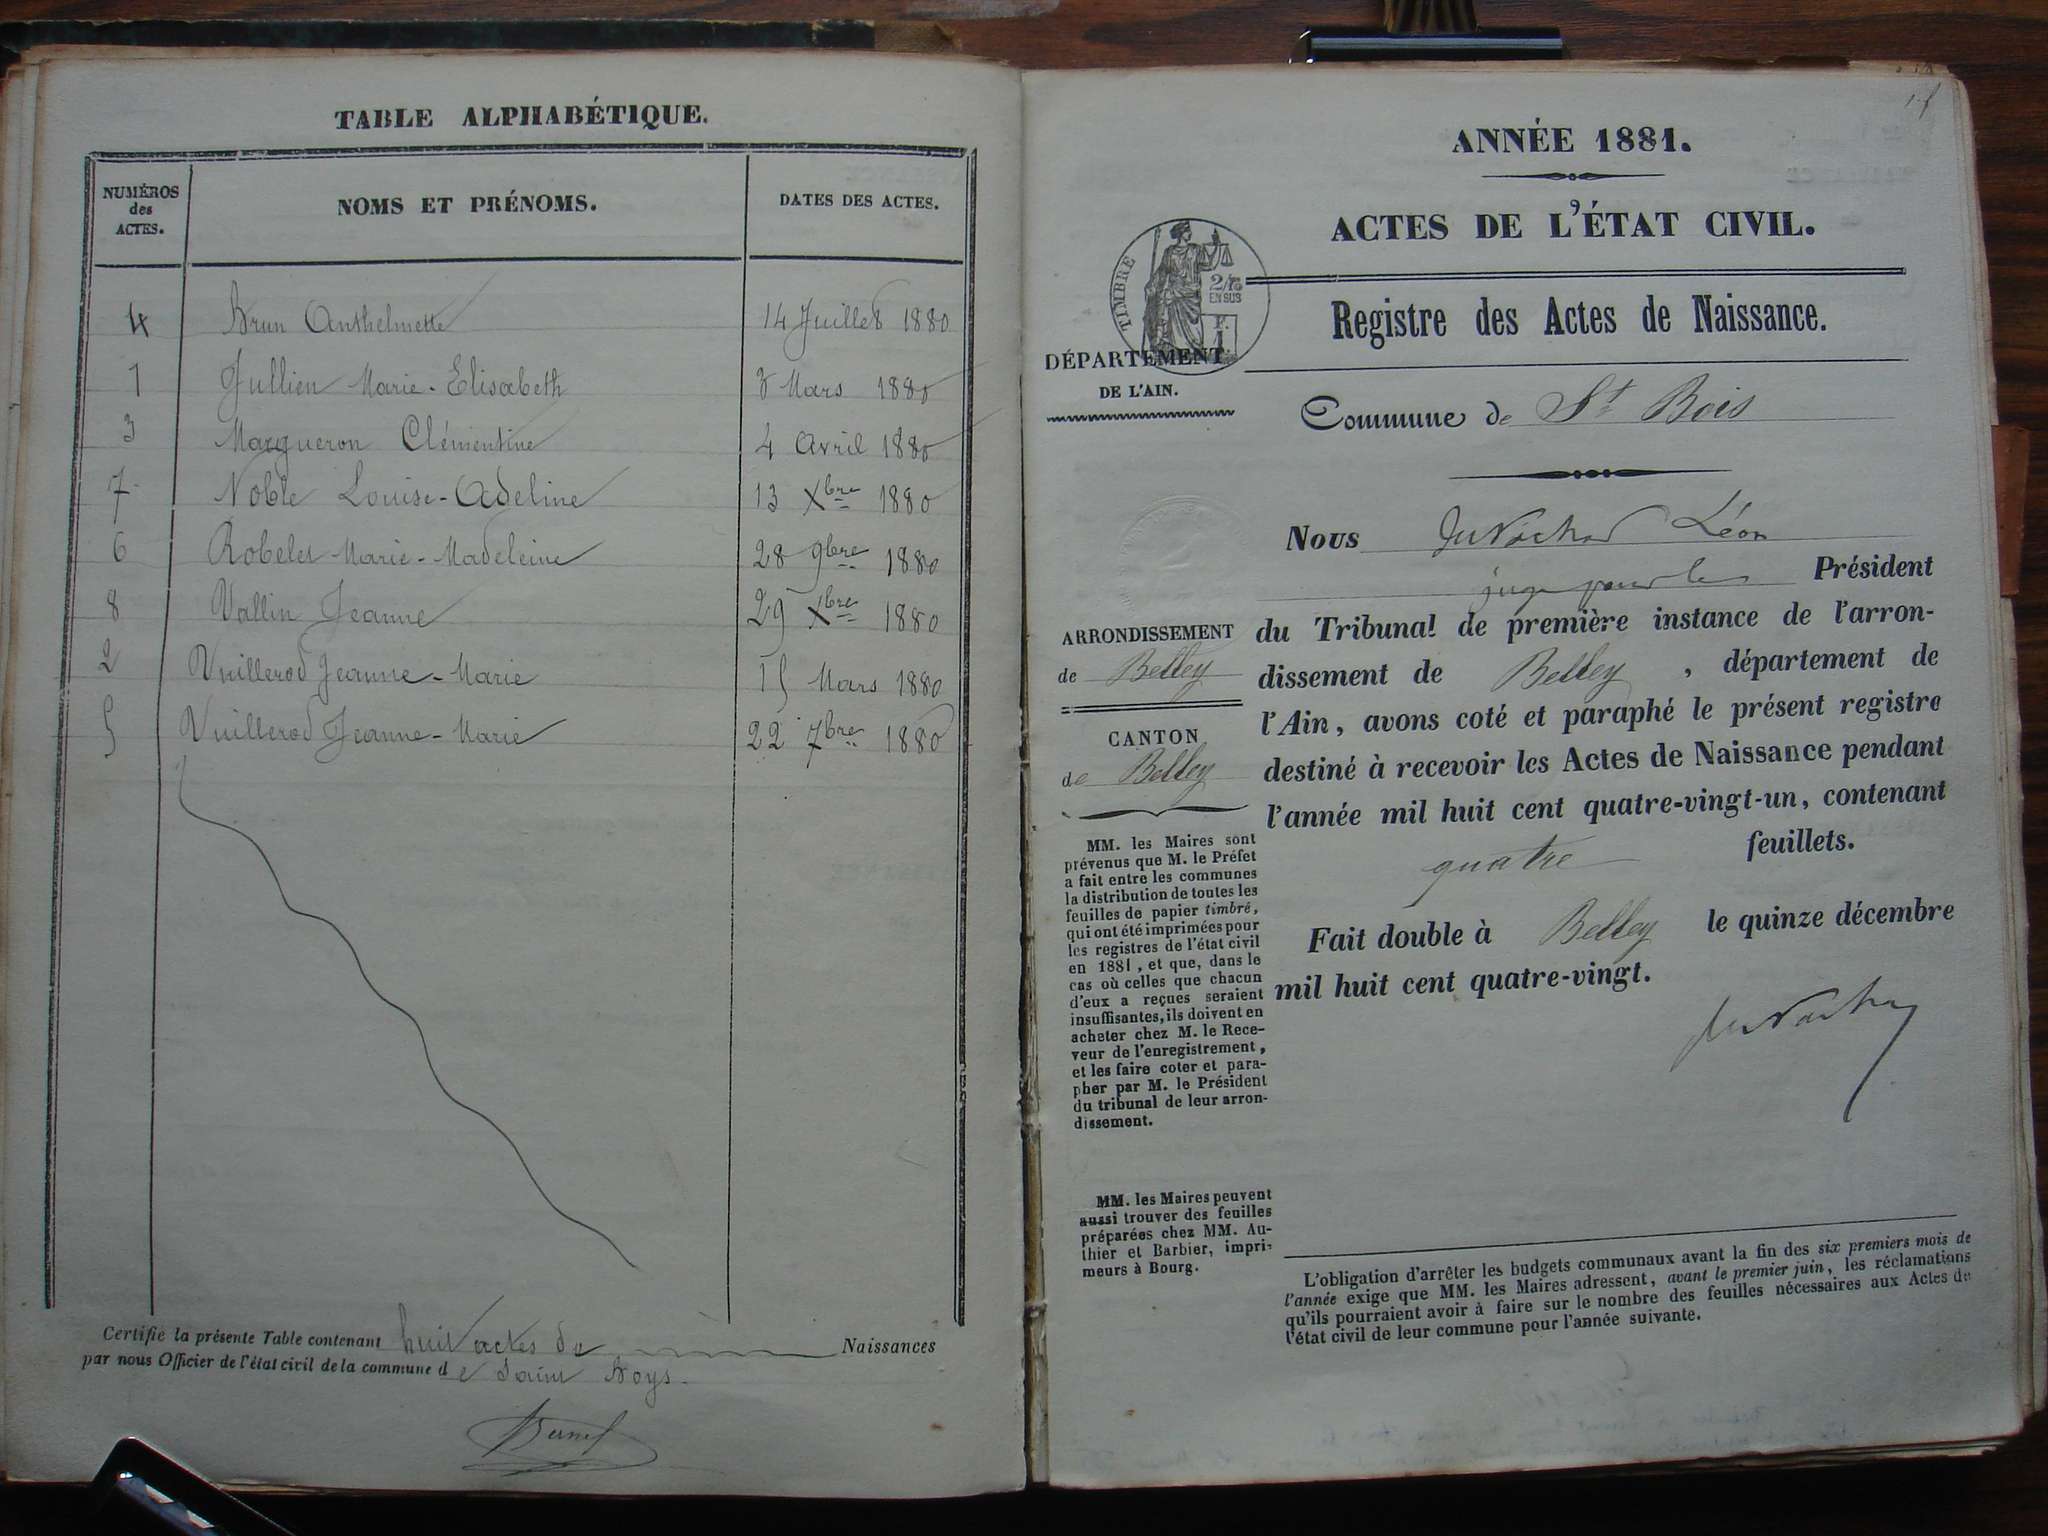 TABLE ALPHABÉTIQUE.
NUMÉROS des ACTES.
NOMS ET PRÉNOMS.
DATES DES ACTES.
4 Brun Anthelmette 14 Juillet 1880
1 Jullien Marie-Elisabeth 3 Mars 1880
3 Margueron Clémentine 4 Avril 1880
7 Noble Louise-Adeline 13 Xbre 1880
6 Robelet Marie-Madeleine 28 9bre 1880
8 Vallin Jeanne 29 Xbre 1880
2 Vuillerod Jeanne-Marie 15 Mars 1880
5 Vuillerod Jeanne-Marie 22 7bre 1880
Certifié la présente Table contenant huit actes de Naissances
par nous Officier de l'état civil de la commune de Saint Boys.
ANNÉE 1881.
ACTES DE L'ÉTAT CIVIL.
TIMBRE
2/10
EN SUS
F.
1
Registre des Actes de Naissance.
DÉPARTEMENT
DE L'AIN.
Commune de St Bois
Nous Léon
juge pour le Président
du Tribunal de première instance de l'arron-
dissement de Belley, département de
l'Ain, avons coté et paraphé le présent registre
destiné à recevoir les Actes de Naissance pendant
l'année mil huit cent quatre-vingt-un, contenant
quatre feuillets.
Fait double à Belley le quinze décembre
mil huit cent quatre-vingt.
ARRONDISSEMENT
de Belley
CANTON
de Belley
MM. les Maires sont
prévenus que M. le Préfet
a fait entre les communes
la distribution de toutes les
feuilles de papier timbré,
qui ont été imprimées pour
les registres de l'état civil
en 1881, et que, dans le
cas où celles que chacun
d'eux a reçues seraient
insuffisantes, ils doivent en
acheter chez M. le Rece-
veur de l'enregistrement,
et les faire coter et para-
pher par M. le Président
du tribunal de leur arron-
dissement.
MM. les Maires peuvent
aussi trouver des feuilles
préparées chez MM. Au-
thier et Barbier, impri-
meurs à Bourg.
L'obligation d'arrêter les budgets communaux avant la fin des six premiers mois de
l'année exige que MM. les Maires adressent, avant le premier juin, les réclamations
qu'ils pourraient avoir à faire sur le nombre des feuilles nécessaires aux Actes de
l'état civil de leur commune pour l'année suivante.